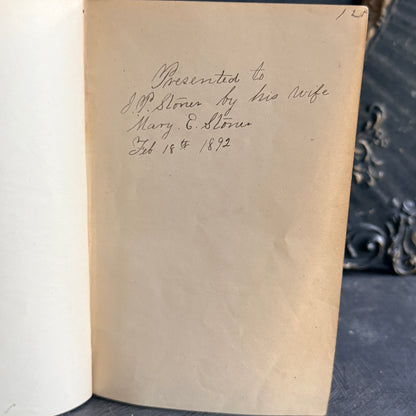 Presented to
J. P. Stoner by his wife
Mary. E. Stoner
Feb 18th 1892